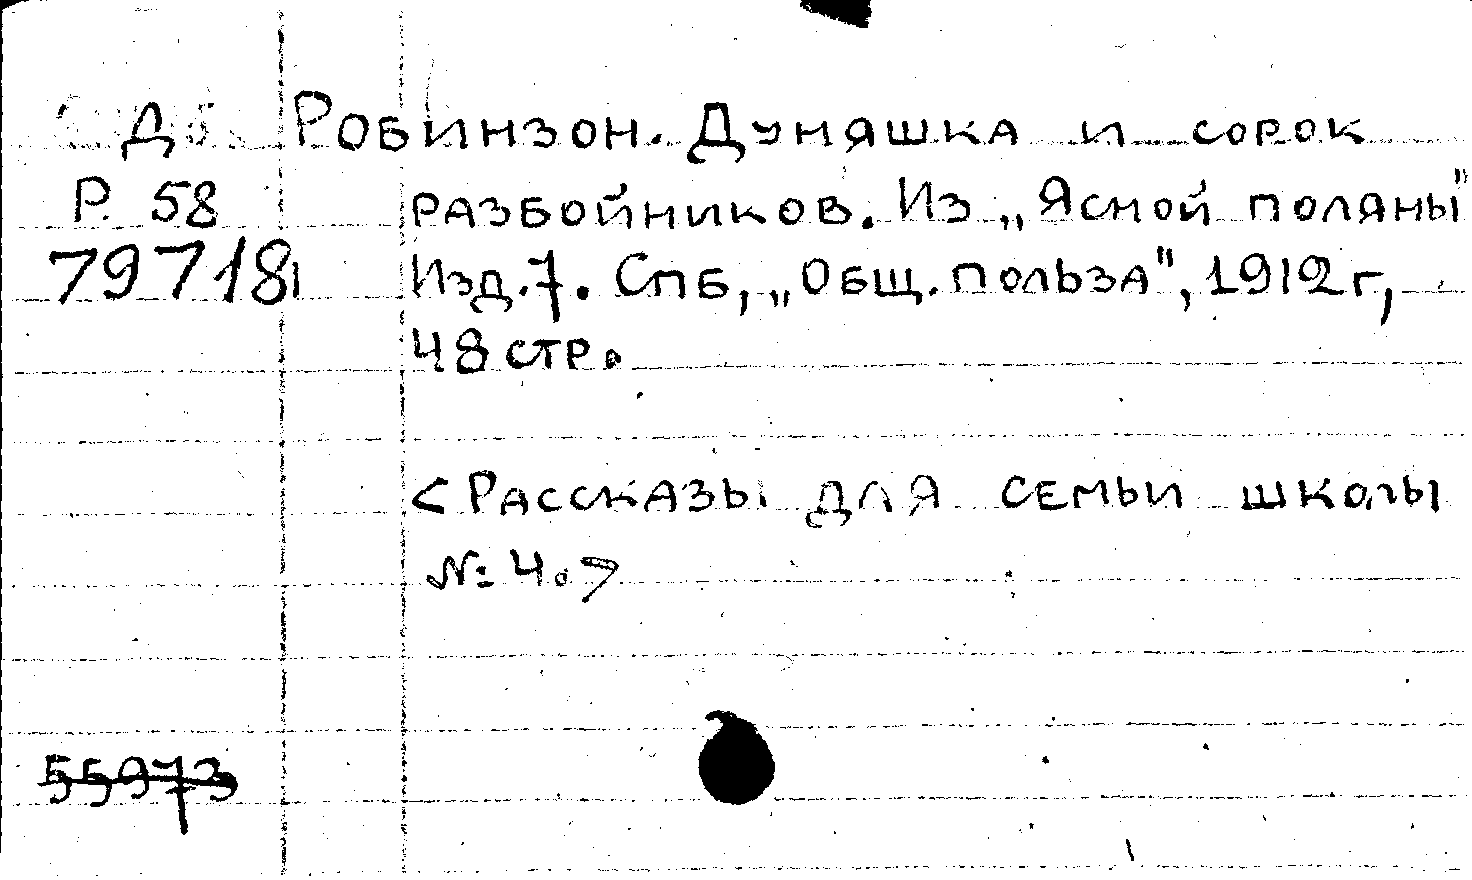 Д Робинзон. Дуняшка и сорок
Р. 58 разбойников. Из „Ясной поляны"
79718 Изд. 7. Спб, „Общ. польза", 1912 г,
48 стр.
<Рассказы для семьи школы
№ 4.>
55973